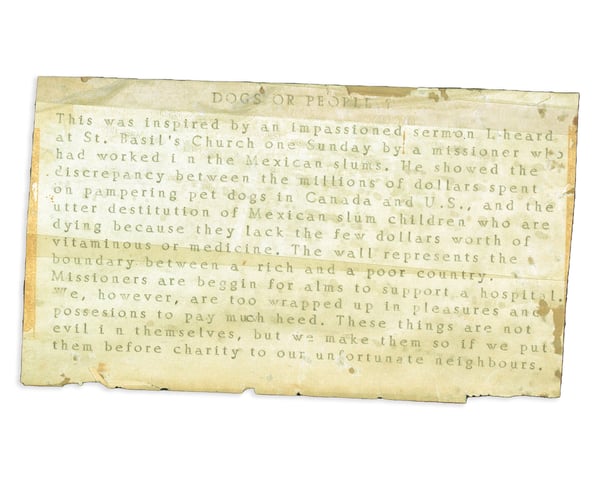 DOGS OR PEOPLE?
This was inspired by an impassioned sermon I heard
at St. Basil's Church one Sunday by a missioner who
had worked in the Mexican slums. He showed the
discrepancy between the millions of dollars spent
on pampering pet dogs in Canada and U.S., and the
utter destitution of Mexican slum children who are
dying because they lack the few dollars worth of
vitaminous or medicine. The wall represents the
boundary between a rich and a poor country.
Missioners are beggin for alms to support a hospital.
We, however, are too wrapped up in pleasures and
possesions to pay much heed. These things are not
evil in themselves, but we make them so if we put
them before charity to our unfortunate neighbours.